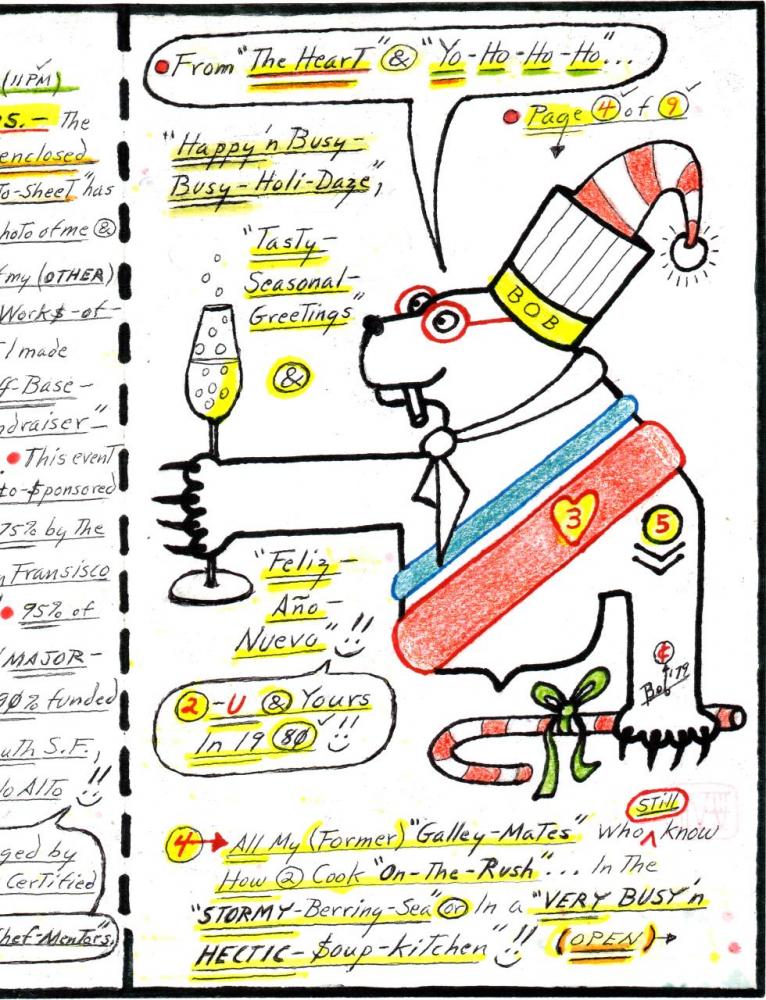 (11PM)
S.- The
enclosed
To-Sheet" has
hoto of me &
my (OTHER)
Work$-of-
I made
ff-Base-
ndraiser"-
• This event
to-$ponsored
75% by The
n Fransisco
• 95% of
MAJOR-
90% funded
uth S.F.,
lo Alto !!
ged by
Certified
Chef-Mentors,
• From "The HearT" & "Yo-Ho-Ho-Ho"...
• Page 4 of 9
"Happy'n Busy-
Busy-Holi-Daze",
"Tasty-
Seasonal-
GreeTings"
&
BOB
3
5
"Feliz-
Año-
Nuevo" !!
2-U & Yours
In 1980 !!
¢
Bob '79
4 → All My (Former) "Galley-MaTes" Who ^ Still know
How 2 Cook "On-The-Rush"... In The
"STORMY-Berring-Sea" or In a "VERY BUSY'n
HECTIC-$oup-KiTchen" !! (OPEN) →